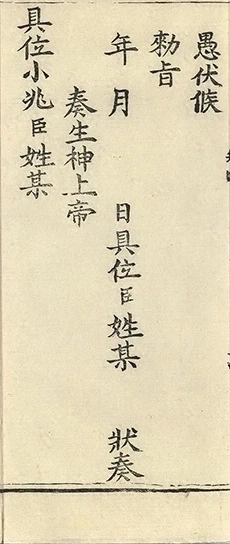 愚伏候
勑旨
年 月 日具位臣姓某 狀奏
奏生神上帝
具位小兆臣姓某